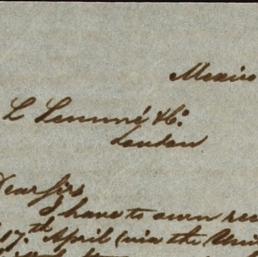 Mexico
C Lemmé & Co
London
Dear Sir
I have to own rec
17th April (via the Uni